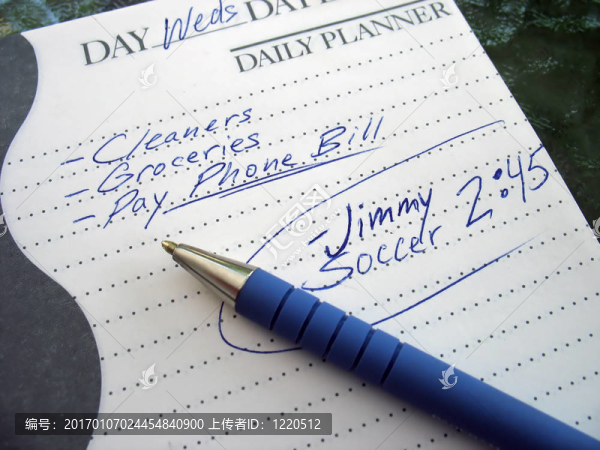 DAY Weds DAY
DAILY PLANNER
- Cleaners
- Groceries
- Pay Phone Bill
- Jimmy
Soccer 2:45
编号：20170107024454840900 上传者ID：1220512